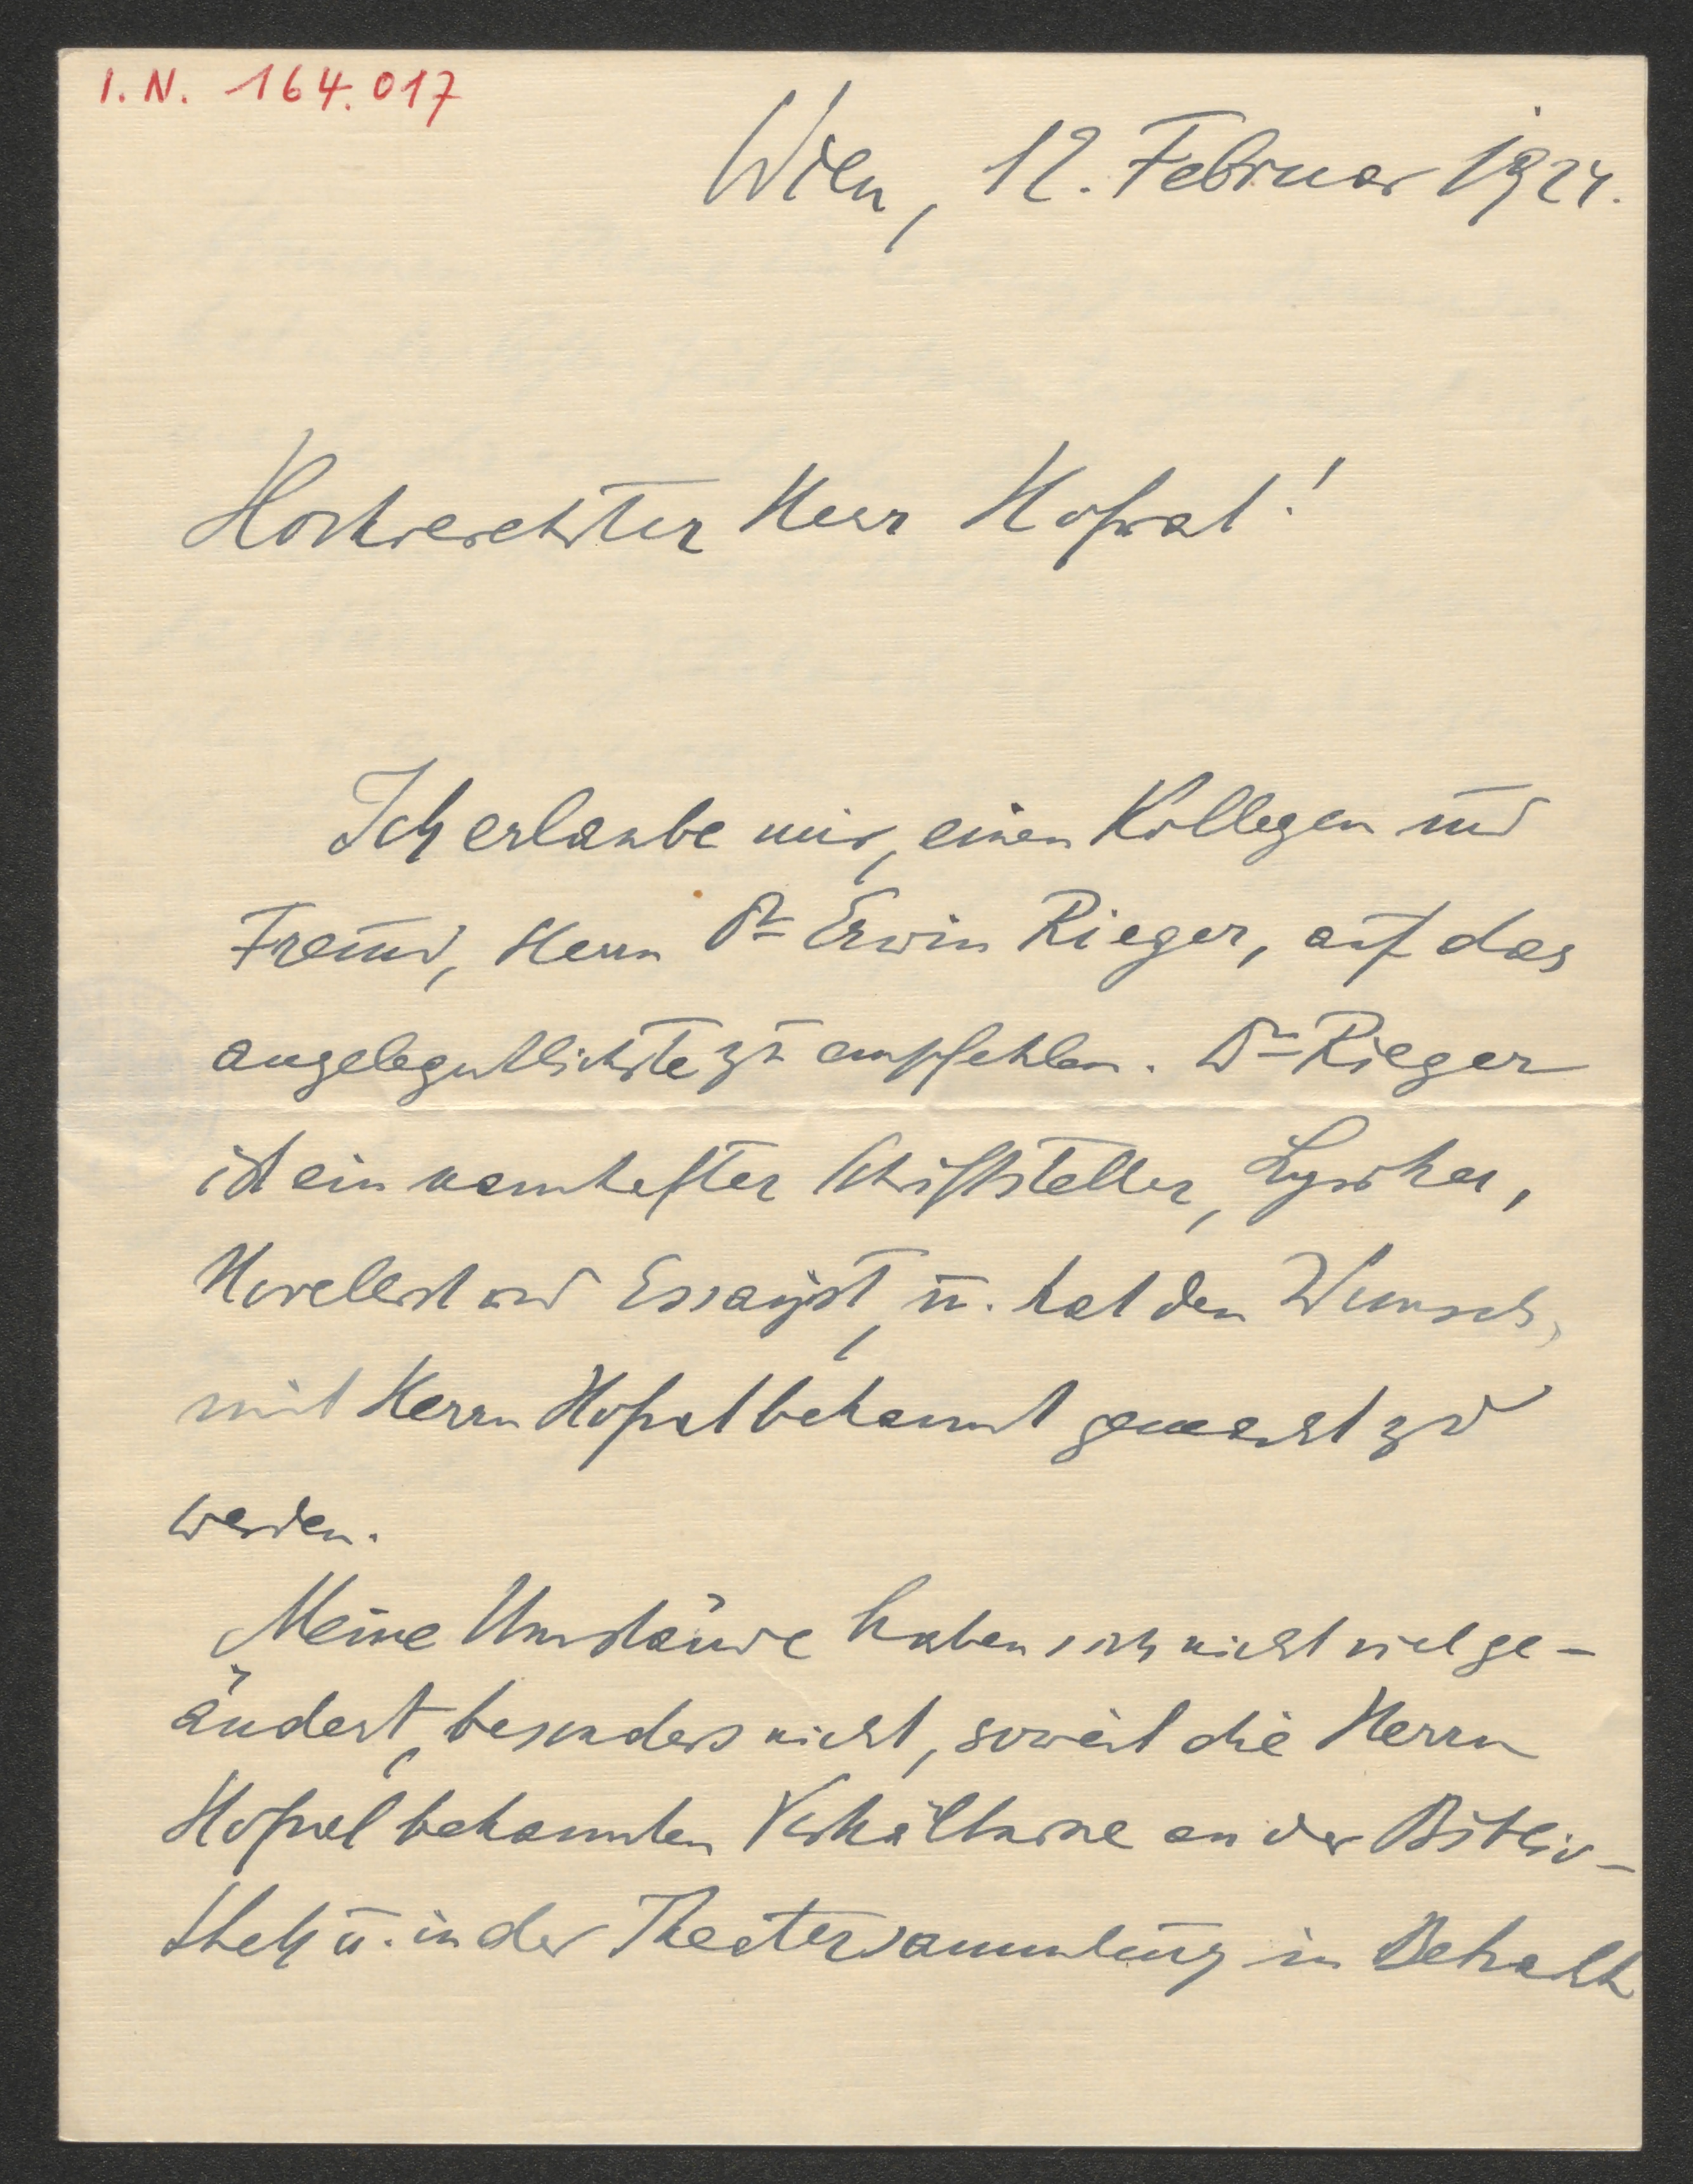 I. N. 164.017
Wien, 12. Februar 1924.
Hochverehrter Herr Hofrat!
Ich erlaube mir, einen Kollegen und
Freund, Herrn Dr Erwin Rieger, auf das
angelegentlichste zu empfehlen. Dr Rieger
ist ein namhafter Schriftsteller, Lyriker,
Novellist und Essayist, u. hat den Wunsch,
mit Herrn Hofrat bekannt gemacht zu
werden.
Meine Umstände haben sich nicht viel ge-
ändert, besonders nicht, soweit die Herrn
Hofrat bekannten Verhältnisse an der Biblio-
thek u. in der Theatersammlung in Betracht